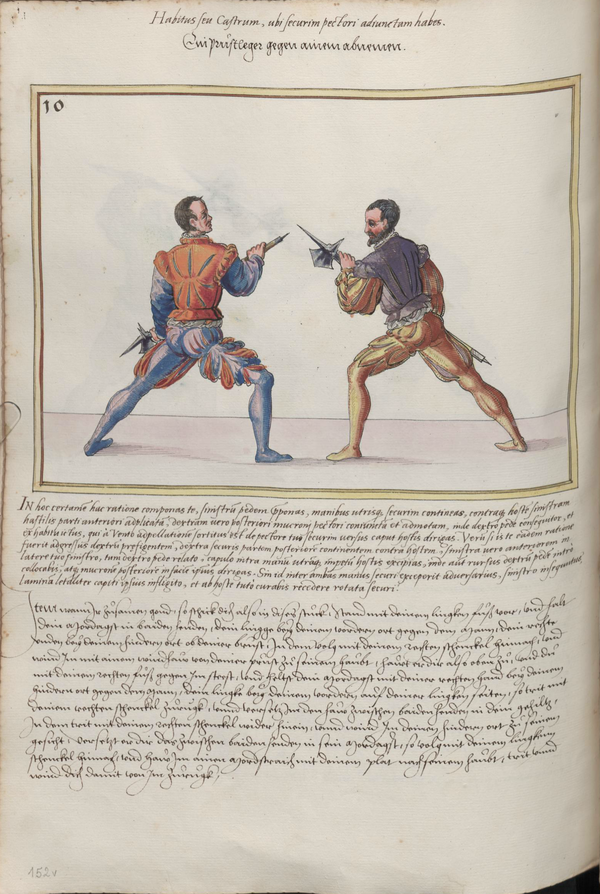 Habitus seu Castrum, ubi securim pectori adiunctam habes.
Ein prustleger gegen ainem abnemen.
10
IN hoc certamine hac ratione componas te, sinistrum pedem opponas, manibus utrisque securim contineas, contraque hostem sinistram
hastilis parti anteriori adplicatam, dextram vero posteriori mucroni pectori coniuncta et admotam, inde dextro pede consequitor, et
ex habitu ictus, qui à Vento appellationem sortitus est de pectore tuo securim versus caput hostis dirigas. Verum si is te eadem ratione
fuerit adgressus dextrum praefigentem, dextra securis partem posteriorem continentem contra hostem, sinistra vero anteriorem in
latere tuo sinistro, tum dextro pede relato, capulo intra manum utramque impetum hostis excipias, inde aut rursus dextrum pedem intro
collocabis, atque mucronem posteriorem in faciem ipsius dirigas. Sin id inter ambas manus securi exceperit adversarius, sinistro insequutus
lamina letaliter capiti ipsius infligito, et ab hoste tuto curabis recedere rotata securi.
Item wann Ir zusamen gond, so schick dich also in dises stuck, stand mit deinem lingken fuss vor, unnd halt
dein Mordagst in baiden henden, dein lingge bey deinem vordern ort gegen dem Mann, dein rechte
henden bey deinem hindern ort ob deiner brust, In dem volg mit deinem rechten schenckel hinnach, unnd
wind Im mit ainem windthaw von deiner prust zu seinem haubt, hawt er dir als oben zu, unnd du
mit deinem rechten fuss gegen Im steest, unnd heltst dein Mordagst mit deiner rechten hand bey deinem
hindern ort gegen dem Mann, dein lingke bey deinem vordern, auf deiner lingken seiten, so trit mit
deinem rechten schenckel zuruck, unnd versetz Im den haw zwischen baiden henden in dein gehiltz,
In dem trit mit deinem rechten schenckel wider hinein, unnd wind Im deinen hindern ort zu seinem
gesicht, versetzt er dir das zwischen baiden henden in sein Mordagst, so volg mit deinem lingken
schenckel hinnach, unnd haw Im ainen Mordstraich mit deinem plat nach seinem haubt, trit unnd
wind dich damit von Im zurugk,
152v